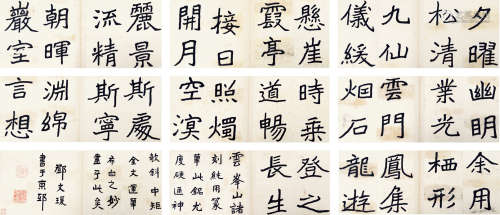 夕曜
松清
九仙
儀緩
懸崖
霞亭
接日
開月
麗景
流精
朝暉
巖室
幽明
業光
雲門
烟石
時乘
道暢
照燭
空溟
斯處
斯寧
淵綿
言想
余用
栖形
鳳集
龍遊
登之
長生
雲峯山諸
刻能用篆
筆此銘尤
瘦硬通神
欹斜中矩
金文運筆
希白之妙
盡于此矣
鄧文瑗
書于京邸